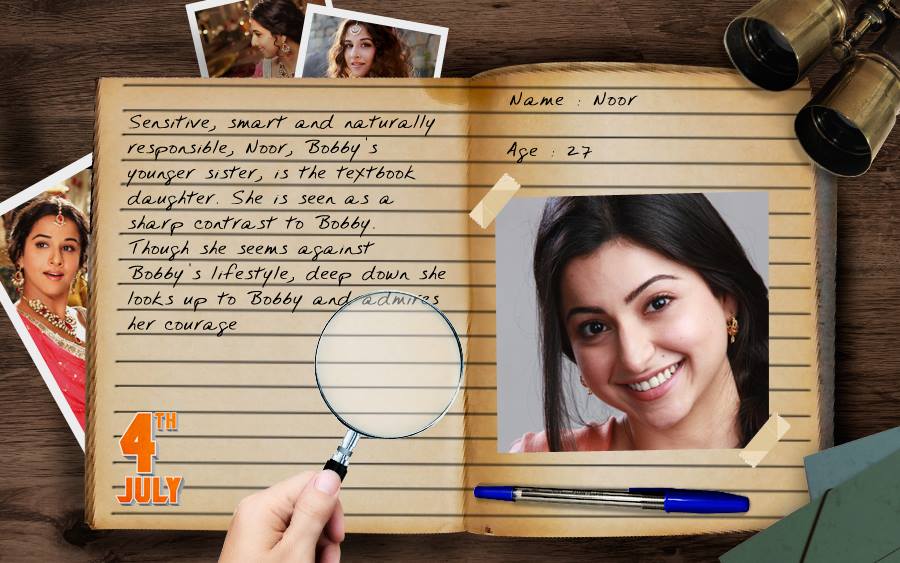 Sensitive, smart and naturally
responsible, Noor, Bobby's
younger sister, is the textbook
daughter. She is seen as a
sharp contrast to Bobby.
Though she seems against
Bobby's lifestyle, deep down she
looks up to Bobby and admires
her courage
4TH
JULY
Name : Noor
Age : 27